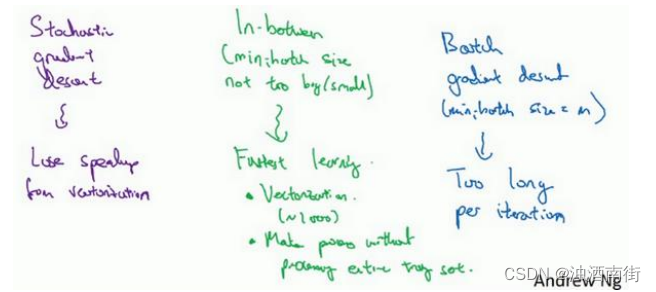 Stochastic
gradient
descent
Lose speedup
from vectorization
In-between
(minibatch size
not too big/small)
Fastest learning.
• Vectorization.
(~1000)
• Make progress without
processing entire training set.
Batch
gradient descent
(minibatch size = m)
Too long
per iteration
Andrew Ng
CSDN @浊酒南街